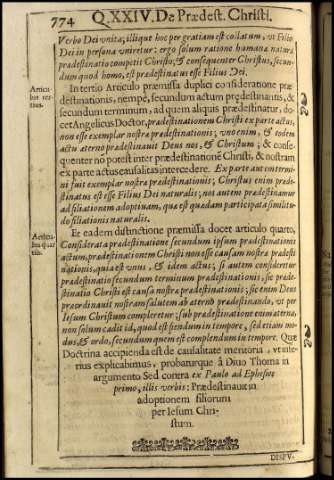 774 Q.XXIV. De Prædest. Christi.
Verbo Dei vnita; illique hoc per gratiam est collatum, vt Filio
Dei in persona vniretur: ergo solum ratione humanæ naturæ
prædestinatio competit Christo; & consequenter Christus, secun-
dum quod homo, est prædestinatus esse Filius Dei.
Articu-
lus ter-
tius.
In tertio Articulo præmissa duplici consideratione præ
destinationis, nempè, secundum actum prędestinantis, &
secundum terminum, ad quem aliquis prædestinatur, do-
cet Angelicus Doctor, prædestinationem Christi ex parte actus,
non esse exemplar nostræ prædestinationis; vno enim, & eodem
actu æterno prædestinauit Deus nos, & Christum; & conse-
quenter no potest inter prædestinationẽ Christi, & nostram
ex parte actus causalitas intercedere. Ex parte autem termi-
ni fuit exemplar nostræ prędestinationis; Christus enim præde-
stinatus est esse Filius Dei naturalis; nos autem prædestinamur
ad filiationem adoptiuam, quæ est quædam participata similitu-
do filiationis naturalis.
Articu-
lus quar
tus.
Et eadem distinctione præmissa docet articulo quarto,
Considerata prædestinatione secundum ipsum prædestinationis
actum, prædestinationem Christi non esse causam nostræ prædesti
nationis, quia est vnus, & idem actus; si autem consideretur
prædestinatio secundum terminum prædestinationis, sic præde-
stinatio Christi est causa nostræ prædestinationis; sic enim Deus
præordinauit nostram salutem ab æterno prædestinando, vt per
Iesum Christum compleretur; sub prædestinatione enim æterna,
non solum cadit id, quod est fiendum in tempore, sed etiam mo-
dus, & ordo, secundum quem est complendum in tempore. Quæ
Doctrina accipienda est de causalitate meritoria, vt infe-
rius explicabimus, probaturque à Diuo Thoma in
argumento Sed contra ex Paulo ad Ephesios
primo, illis verbis: Prædestinauit nos in
adoptionem filiorum
per Iesum Chri-
stum.
DISPV-